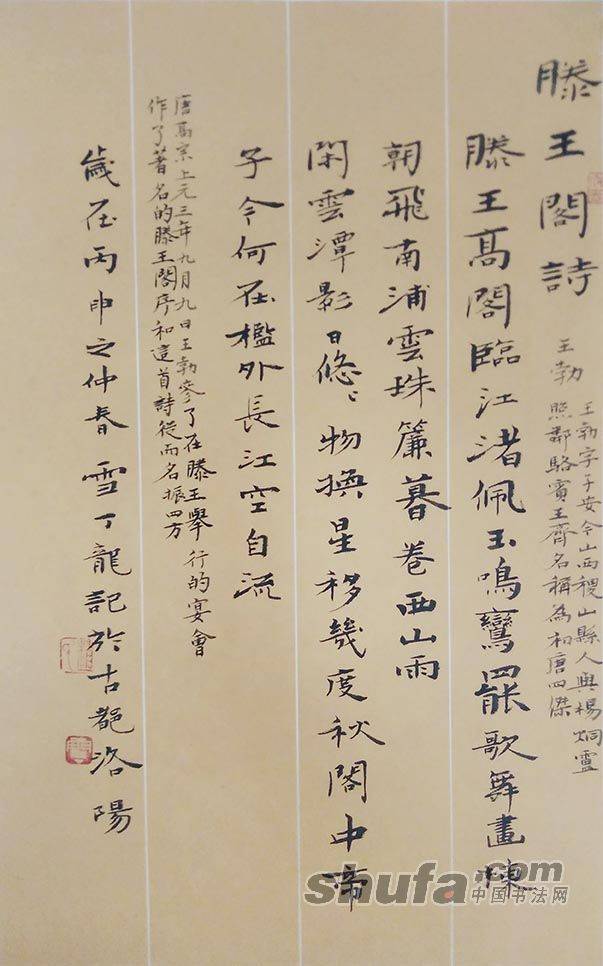 滕王閣詩
王勃
王勃字子安今山西稷山縣人與楊炯盧
照鄰駱賓王齊名稱為初唐四傑
滕王高閣臨江渚佩玉鳴鸞罷歌舞畫棟
朝飛南浦雲珠簾暮卷西山雨
閑雲潭影日悠〻物換星移幾度秋閣中帝
子今何在檻外長江空自流
唐高宗上元三年九月九日王勃參了在滕王舉行的宴會
作了著名的滕王閣序和這首詩從而名振四方
歲在丙申之仲春雪丁龍記於古都洛陽
shufa.com
中国书法网